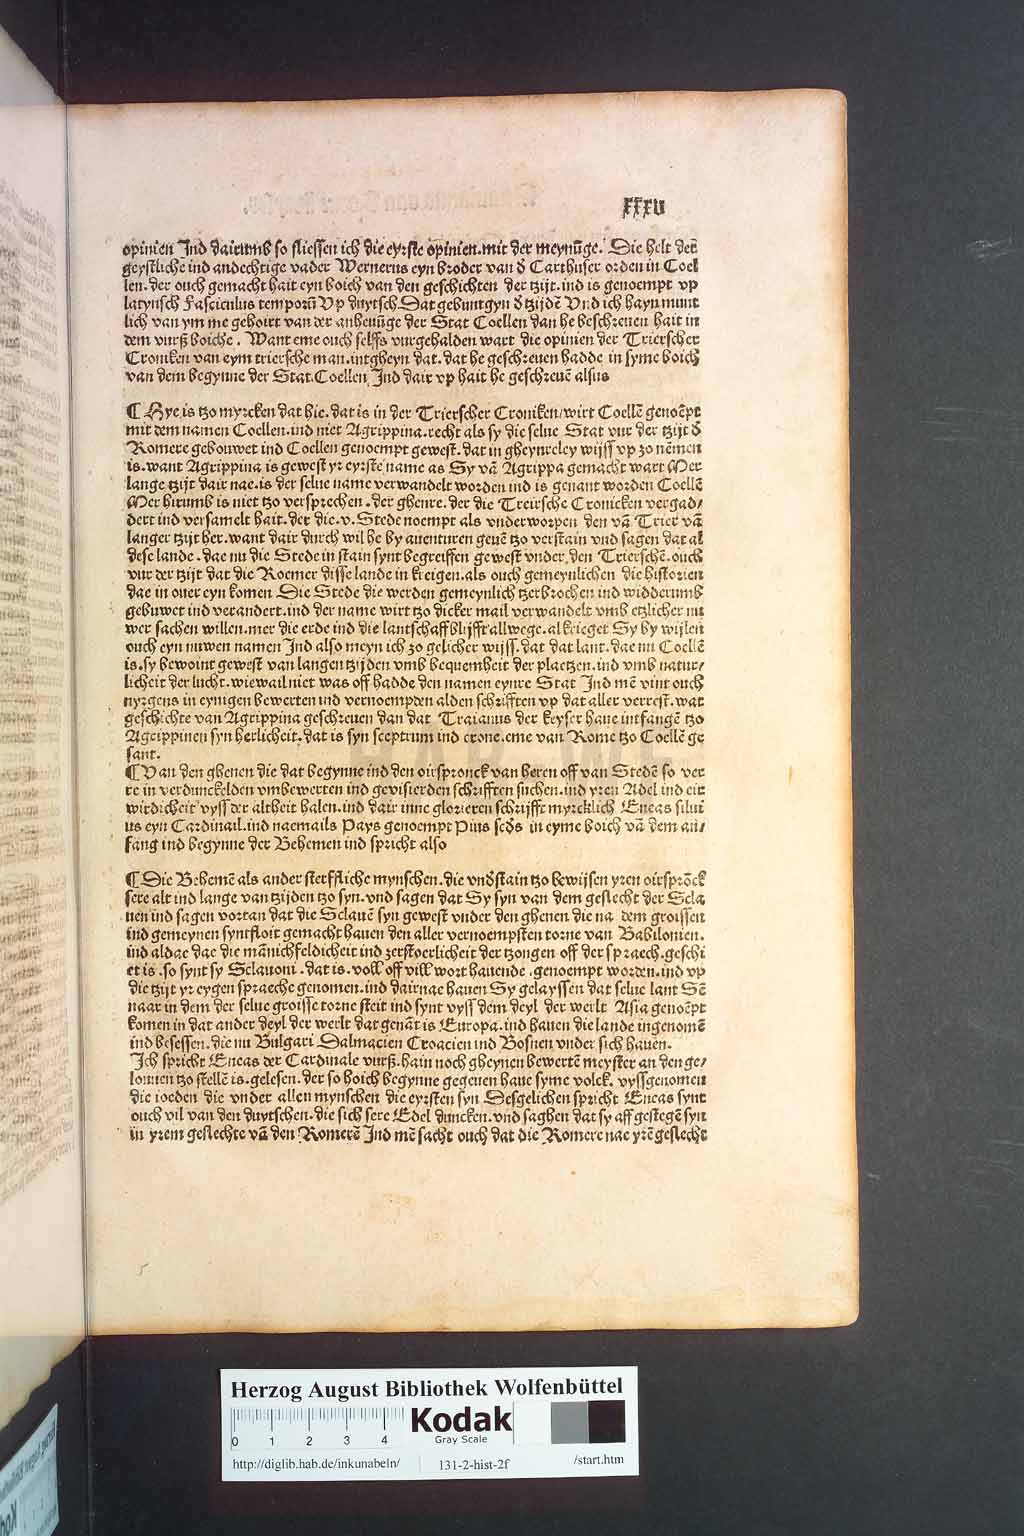 xxxv
opinien Jnd dairumb so sliessen ich die eyrste opinien.mit der meynũge. Die helt der
geystliche ind andechtige vader Wernerus eyn broder van ð Carthuser orden in Coel
len.der ouch gemacht hait eyn boich van den geschichten der tzijt.ind is genoempt vp
latynsch Fasciculus temporũ Vp duytsch.Dat gebuntgyn ð tzijdẽ Vnd ich hayn munt
lich van ym me gehoirt van der anheuũge der Stat Coellen dan he beschreuen hait in
dem vurß boiche . Want eme ouch selffs vurgehalden wart die opinien der Trierscher
Croniken van eym triersche man.intgheyn dat.dat he geschreuen hadde in syme boich
van dem begynne der Stat.Coellen Jnd dair vp hait he geschreuẽ alsus
¶ Hye is tzo myrcken dat hie.dat is in der Trierscher Croniken/wirt Coellẽ genoẽpt
mit dem namen Coellen.ind niet Agrippina.recht als sy die selue Stat vur der tzijt ð
Romere gebouwet ind Coellen genoempt gewest.dat in gheynreley wijss vp zo nẽmen
is.want Agrippina is gewest yr eyrste name as Sy vã Agrippa gemacht wart Mer
lange tzijt dair nae.is der selue name verwandelt worden ind is genant worden Coellẽ
Mer hirumb is niet tzo versprechen . der ghenre. der die Treirsche Cronicken vergad/
dert ind versamelt hait.der die.v.Stede noempt als vnderworpen den vã Trier vã
langer tzijt her.want dair durch wil he by auenturen geuẽ tzo verstain vnd sagen dat al
dese lande . dae nu die Stede in stain synt begreiffen gewest vnder den Trierschẽ.ouch
vur der tzijt dat die Roemer disse lande in kreigen.als ouch gemeynlichen die historien
dae in ouer eyn komen Die Stede die werden gemeynlich tzerbrochen ind widderumb
gebuwet ind verandert.ind der name wirt tzo dicker mail verwandelt vmb etzlicher nu
wer sachen willen.mer die erde ind die lantschaff blijfft allwege.al krieget Sy by wijlen
ouch eyn nuwen namen Jnd also meyn ich zo gelicher wijss.dat dat lant.dae nu Coellẽ
is.sy bewoint gewest van langen tzijden vmb bequemheit der plaetzen.ind vmb natur/
licheit der lucht.wiewail niet was off hadde den namen eynre Stat Jnd mẽ vint ouch
nyrgens in eynigen bewerten ind vernoempden alden schrifften vp dat aller verrest.wat
geschichte van Agrippina geschreuen dan dat Traianus der keyser haue intfangẽ tzo
Agrippinen syn herlicheit.dat is syn sceptrum ind crone.eme van Rome tzo Coellẽ ge
sant.
¶ Van den ghenen die dat begynne ind den oirspronck van heren off van Stedẽ so ver
re in verdunckelden vmbewerten ind gevisierden schrifften suchen.ind yren Adel ind eir
wirdicheit vyss der altheit halen.ind dair inne glorieren schrijfft myrcklich Eneas siluí
us eyn Cardinail.ind naemails Pays genoempt Pius scðs in eyme boich vã dem an/
fang ind begynne der Behemen ind spricht also
¶ Die Behemẽ als ander sterffliche mynschen.die vnðstain tzo bewijsen yren oirsprõck
sere alt ind lange van tzijden tzo syn.vnd sagen dat Sy syn van dem geslecht der Scla
uen ind sagen vortan dat die Sclauẽ syn gewest vnder den ghenen die na dem groissen
ind gemeynen syntfloit gemacht hauen den aller vernoempsten torne van Babilonien.
ind aldae dae die mãnichfeldicheit ind zerstoerlicheit der tzongen off der spraech.geschi
et is .so synt sy Sclauoni . dat is . voll off vill wort hauende .genoempt worden.ind vp
die tzijt yr eygen spraeche genomen.ind dairnae hauen Sy gelayssen dat selue lant Sẽ
naar in dem der selue groisse torne steit ind synt vyss dem deyl der werlt Asia genoẽpt
komen in dat ander deyl der werlt dat genãt is Europa.ind hauen die lande ingenomẽ
ind besessen.die nu Bulgari Dalmacien Croacien ind Bosnen vnder sich hauen.
Jch spricht Eneas der Cardinale vurß.hain noch gheynen bewertẽ meyster an den ge/
louuen tzo stellẽ is.gelesen.der so hoich begynne gegeuen haue syme volck. vyssgenomen
die ioeden die vnder allen mynschen die eyrsten syn Desgelichen spricht Eneas synt
ouch vil van den duytschen.die sich sere Edel duncken.vnd saghen dat sy aff gestegẽ syn
in yrem geslechte vã den Romerẽ Jnd mẽ sacht ouch dat die Romere nae yrẽ geslecht
Herzog August Bibliothek Wolfenbüttel
0 1 2 3 4
Kodak
Gray Scale
http://diglib.hab.de/inkunabeln/ 131-2-hist-2f /start.htm